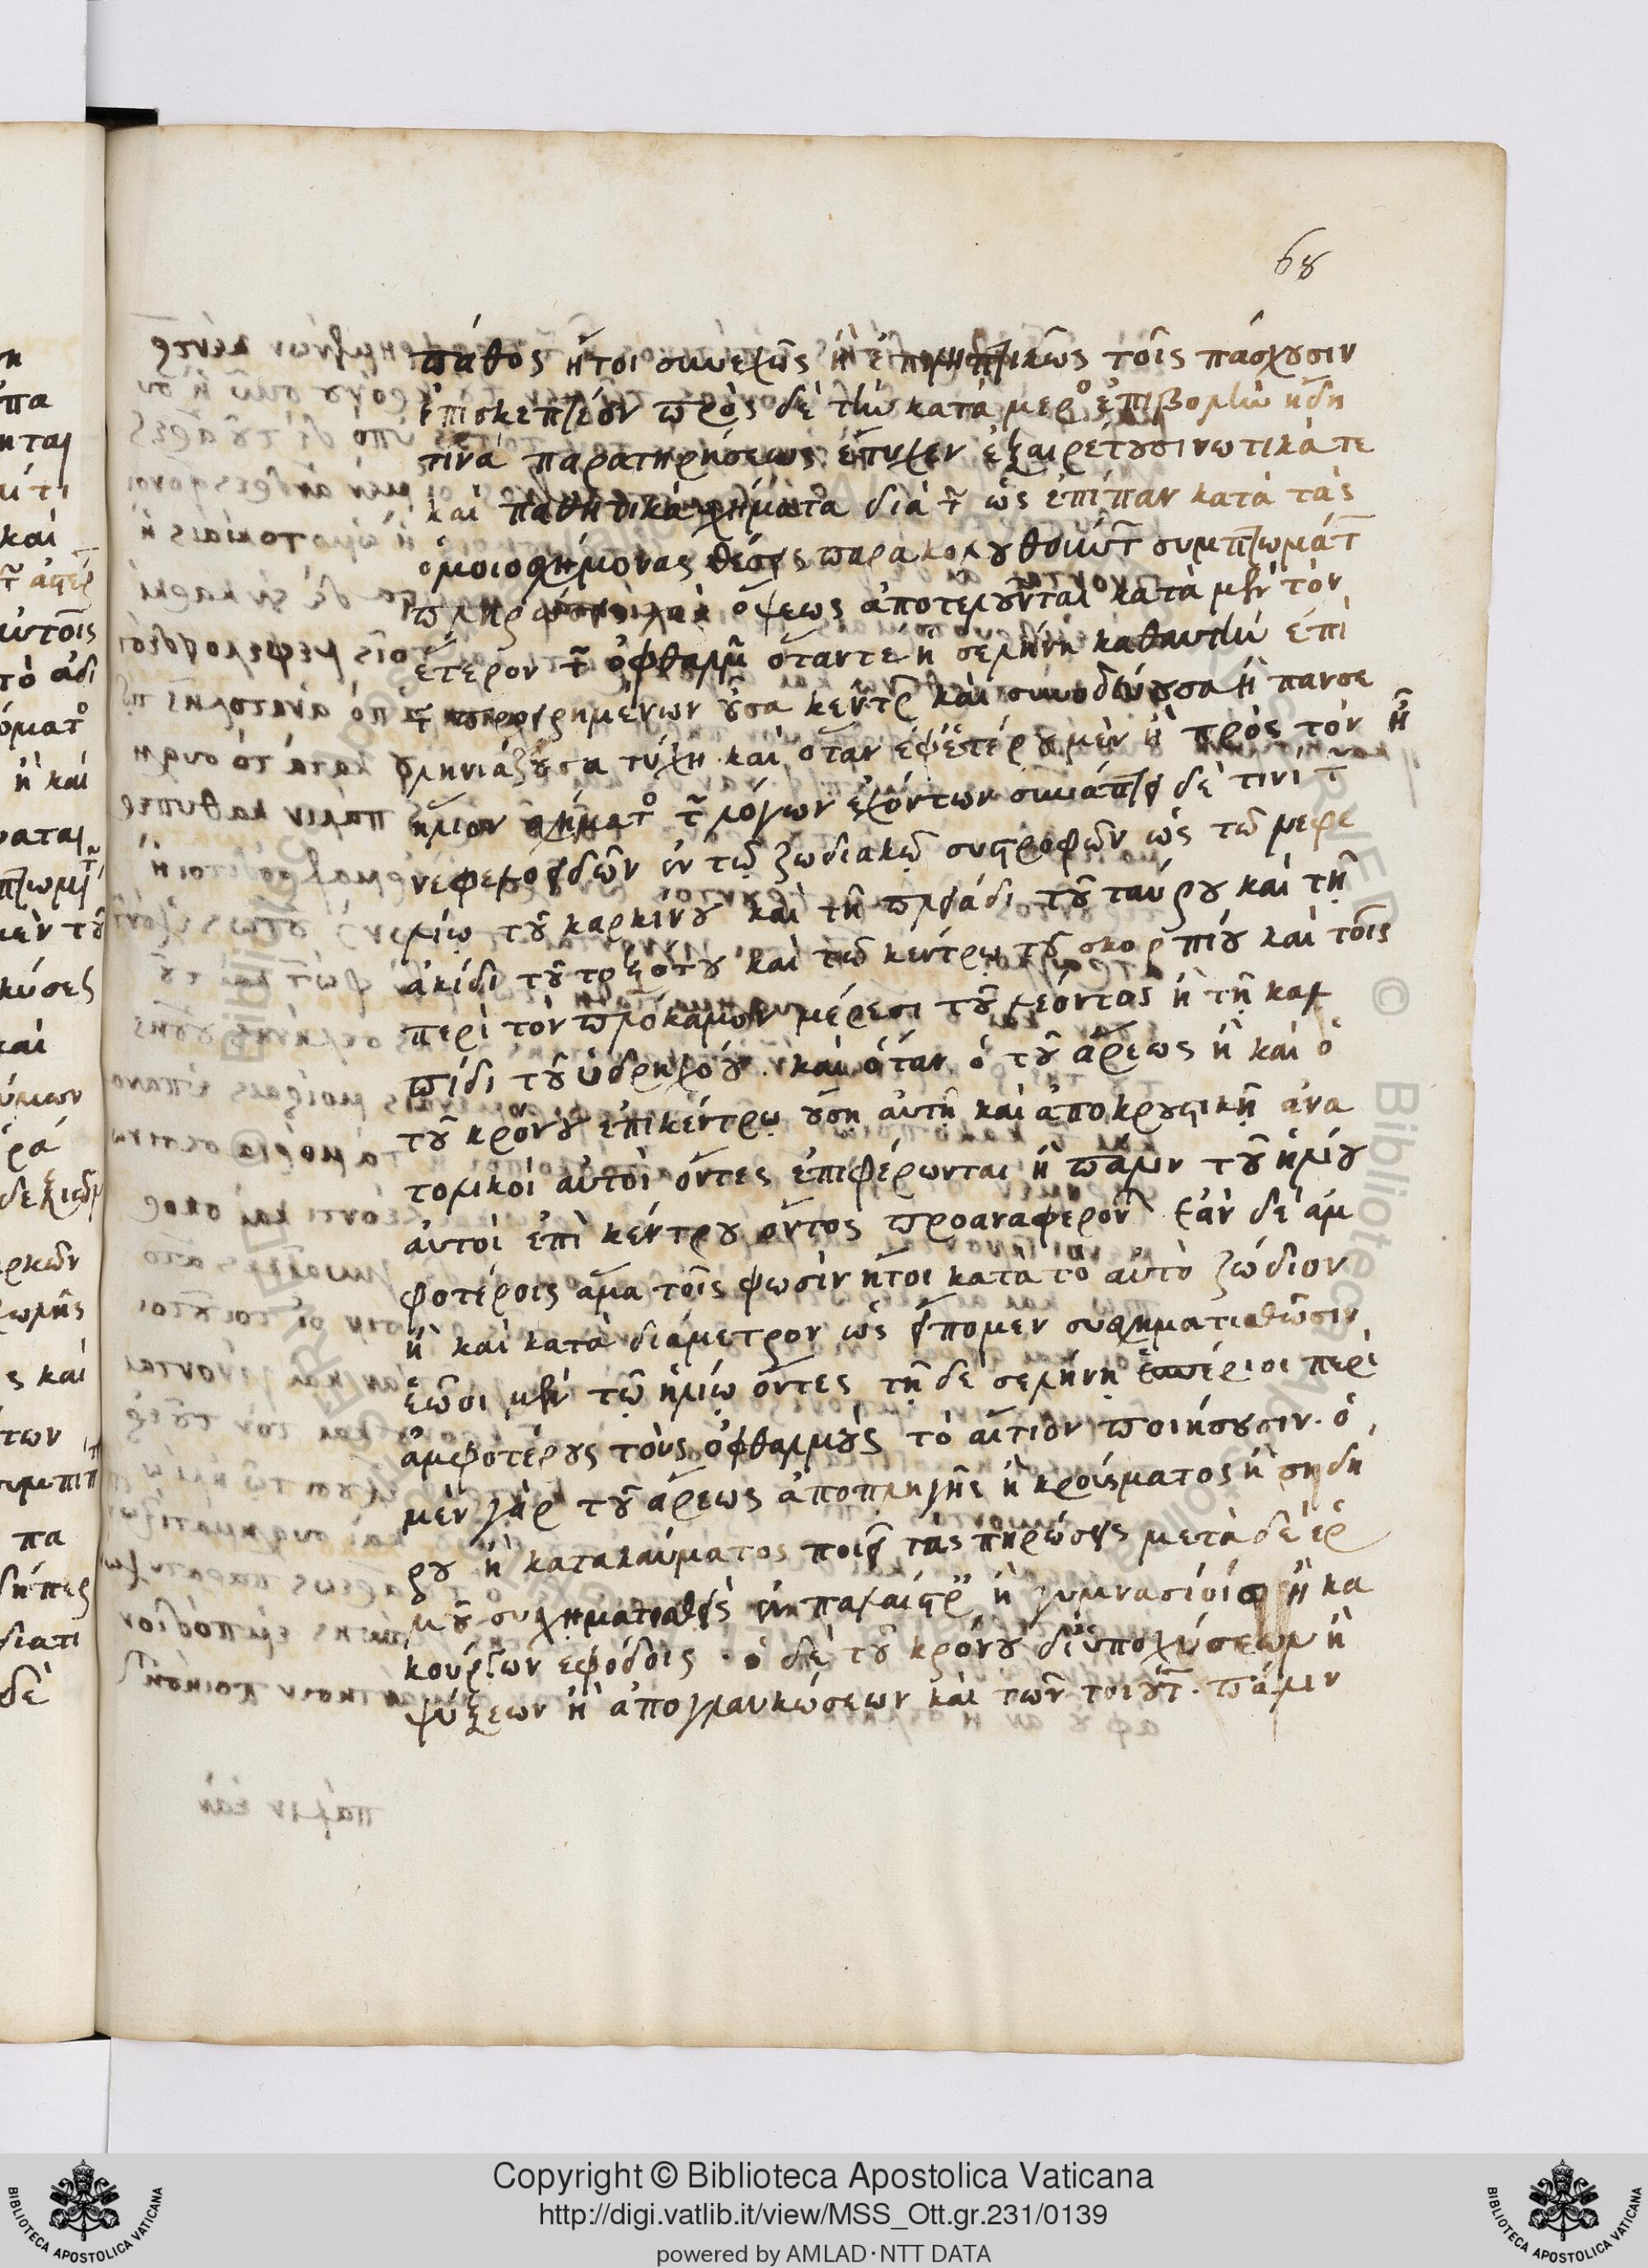 68
πάθος ἤτοι συνεχῶς ἢ ἐπιληπτικῶς τοῖς πάσχουσιν
ἐπισκεπτέον πρὸς δὲ τὴν κατὰ μέρος ἐπιβολὴν ἤδη
τινὰ παρατηρήσεως ἔτυχεν ἐξαιρέτου σινωτικά τε
καὶ παθητικὰ σχήματα διὰ τῶν ὡς ἐπίπαν κατὰ τὰς
ὁμοιοσχήμονας θέσεις παρακολουθούντων συμπτωμάτων
ὄψεως ἀποτελοῦνται κατὰ μὲν τὸν
ἕτερον τῶν ὀφθαλμῶν ὅταν τε ἡ σελήνη καθ αυτὴν ἐπὶ
τῶν προειρημένων οὖσα κέντρων καὶ συνοδεύουσα ἢ πανσε
ληνιάζουσα τύχῃ καὶ ὅταν ἐφ ἑτέρου μὲν ᾖ πρὸς τὸν ἥ
ἥλιον σχήματος τῶν λόγων ἐχόντων συνάπτει δέ τινι τῶν
νεφελοειδῶν ἐν τῷ ζωδιακῷ συστροφῶν ὡς τῷ νεφε
λίῳ τοῦ καρκίνου καὶ τῇ πλειάδι τοῦ ταύρου καὶ τῇ
ἀκίδι τοῦ τοξότου καὶ τῷ κέντρῳ τοῦ σκορπίου καὶ τοῖς
περὶ τὸν πλόκαμον μέρεσι τοῦ λέοντος ἢ τῇ καλ
πίδι τοῦ ὑδρηχόου. καὶ ὅταν ὁ τοῦ ἄρεως ἢ καὶ ὁ
τοῦ κρόνου ἐπικέντρῳ οὔσῃ αὐτῇ καὶ ἀποκρουστικῇ ἀνα
τολικοὶ αὐτοὶ ὄντες ἐπιφέρωνται ἢ πάλιν τοῦ ἡλίου
αὐτοὶ ἐπὶ κέντρου ὄντος προαναφερον ἐὰν δὲ ἀμ
φοτέροις ἅμα τοῖς φωσὶν ἤτοι κατὰ τὸ αὐτὸ ζώδιον
ἢ καὶ κατὰ διάμετρον ὡς εἴπομεν συσχηματισθῶσιν
ἑῶοι μὲν τῷ ἡλίῳ ὄντες τῇ δὲ σελήνῃ ἑσπέριοι περὶ
ἀμφοτέρους τοὺς ὀφθαλμοὺς τὸ αἴτιον ποιήσουσιν. ὁ
μὲν γὰρ τοῦ ἄρεως ἀποπληγῆς ἢ κρούσματος ἢ σηδή
ρου ἢ κατακαύματος ποιεῖ τὰς πηρώσεις μετὰ δὲ ἑρ
μοῦ συσχηματισθεὶς ἐν παλαίστραις ἢ γυμνασίοις ἢ κα
κούργων ἐφόδοις. ὁ δὲ τοῦ κρόνου δι ὑποχύσεων ἢ
ψύξεων ἢ ἀπογλαυκώσεων καὶ τῶν τοιούτων. πάλιν
Copyright © Biblioteca Apostolica Vaticana
http://digi.vatlib.it/view/MSS_Ott.gr.231/0139
powered by AMLAD·NTT DATA